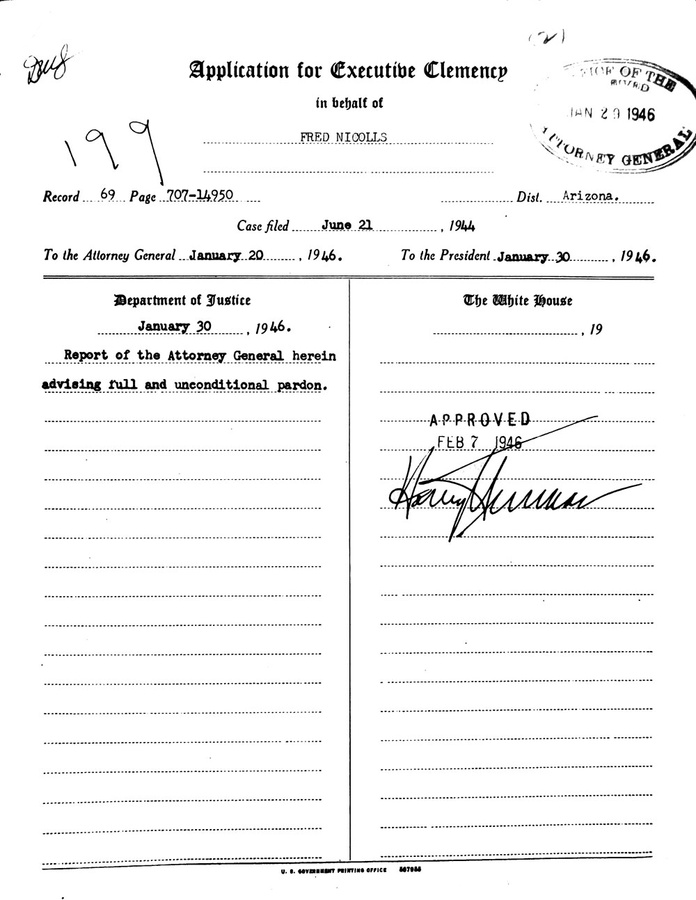 (2)
Application for Executive Clemency
in behalf of
OFFICE OF THE
RECEIVED
JAN 29 1946
ATTORNEY GENERAL
199
FRED NICOLLS
Record 69 Page 707-14950 Dist. Arizona.
Case filed June 21, 1944
To the Attorney General January 20, 1946. To the President January 30, 1946.
Department of Justice
January 30, 1946.
Report of the Attorney General herein
advising full and unconditional pardon.
The White House
, 19
APPROVED
FEB 7 1946
Harry Truman
U. S. GOVERNMENT PRINTING OFFICE